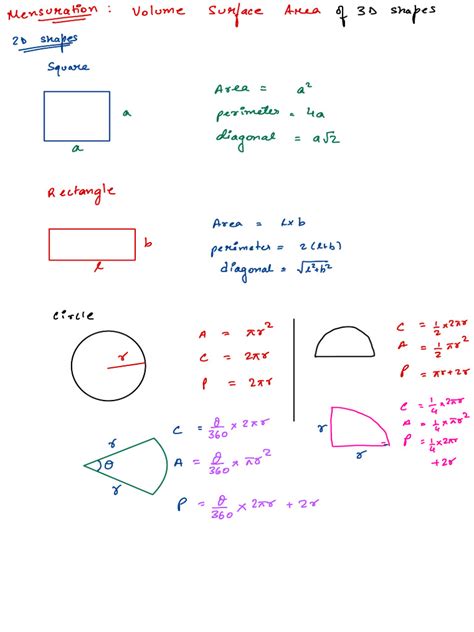 Mensuration : Volume Surface Area of 3D shapes
2D shapes
Square
a
a
Area = a²
perimeter = 4a
diagonal = a√2
Rectangle
b
l
Area = L×b
perimeter = 2(l+b)
diagonal = √l²+b²
Circle
r
A = πr²
C = 2πr
P = 2πr
C = 1/2 × 2πr
A = 1/2 πr²
P = πr+2r
r
θ
r
C = θ/360 × 2πr
A = θ/360 × πr²
P = θ/360 × 2πr + 2r
r
r
C = 1/4 × 2πr
A = 1/4 × πr²
P = 1/4 × 2πr
+2r